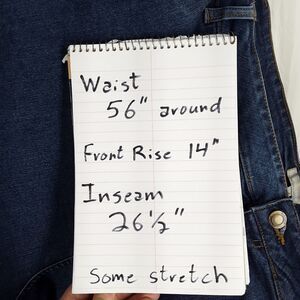 Waist
56" around
Front Rise 14"
Inseam
26½"
Some stretch